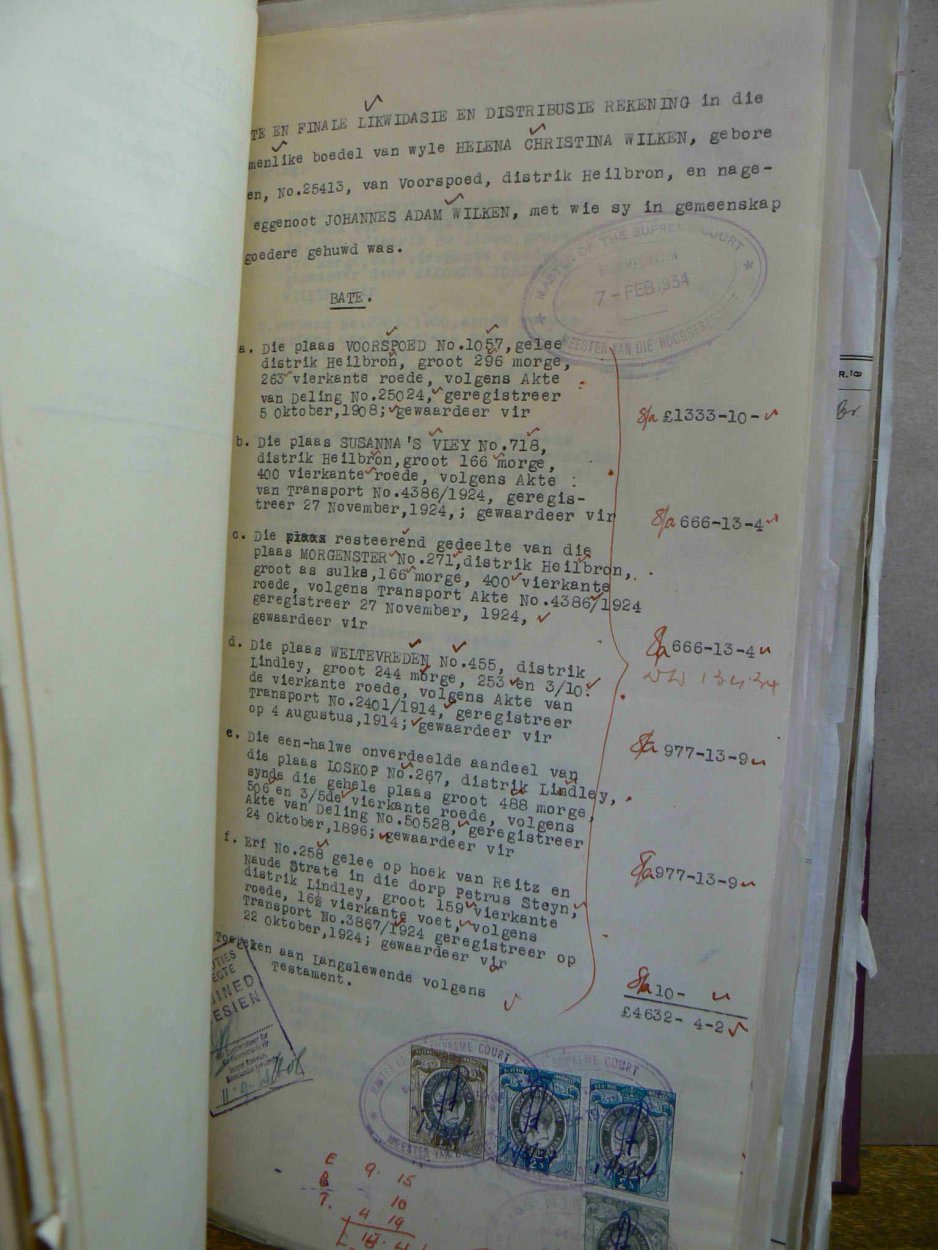 TE EN FINALE LIKWIDASIE EN DISTRIBUSIE REKENING in die
menlike boedel van wyle HELENA CHRISTINA WILKEN, gebore
en, No.25413, van Voorspoed, distrik Heilbron, en nage-
eggenoot JOHANNES ADAM WILKEN, met wie sy in gemeenskap
goedere gehuwd was.
MASTER OF THE SUPREME COURT
7 - FEB.1934
MEESTER VAN DIE HOOGGEREGSHOF
BATE.
a. Die plaas VOORSPOED No.1057, gelee
distrik Heilbron, groot 296 morge,
263 vierkante roede, volgens Akte
van Deling No.25024, geregistreer
5 Oktober,1908; gewaardeer vir
£1333-10-
b. Die plaas SUSANNA'S VLEY No.718,
distrik Heilbron, groot 166 morge,
400 vierkante roede, volgens Akte :
van Transport No.4386/1924, geregis-
treer 27 November,1924,; gewaardeer vir
666-13-4
c. Die plaas resteerend gedeelte van die
plaas MORGENSTER No.271, distrik Heilbron,
groot as sulks,166 morge, 400 vierkante
roede, volgens Transport Akte No.4386/1924
geregistreer 27 November, 1924,
gewaardeer vir
666-13-4
d. Die plaas WELTEVREDEN No.455, distrik
Lindley, groot 244 morge, 253 en 3/10:
de vierkante roede, volgens Akte van
Transport No.2401/1914, geregistreer
op 4 Augustus,1914; gewaardeer vir
977-13-9
e. Die een-halwe onverdeelde aandeel van
die plaas LOSKOP No.267, distrik Lindley,
synde die gehele plaas groot 488 morge,
506 en 3/5de vierkante roede, volgens
Akte van Deling No.50528, geregistreer
24 Oktober,1896; gewaardeer vir
977-13-9
f. Erf No.258 gelee op hoek van Reitz en
Naude Strate in die dorp Petrus Steyn,
distrik Lindley, groot 159 vierkante
roede, 16½ vierkante voet, volgens
Transport No.3867/1924 geregistreer op
22 Oktober,1924; gewaardeer vir
10-
£4632- 4-2
Toegeken aan Langslewende volgens
Testament.
SUPREME COURT
SUPREME COURT
MEESTER VAN
E 9. 15
10
T. 4 19